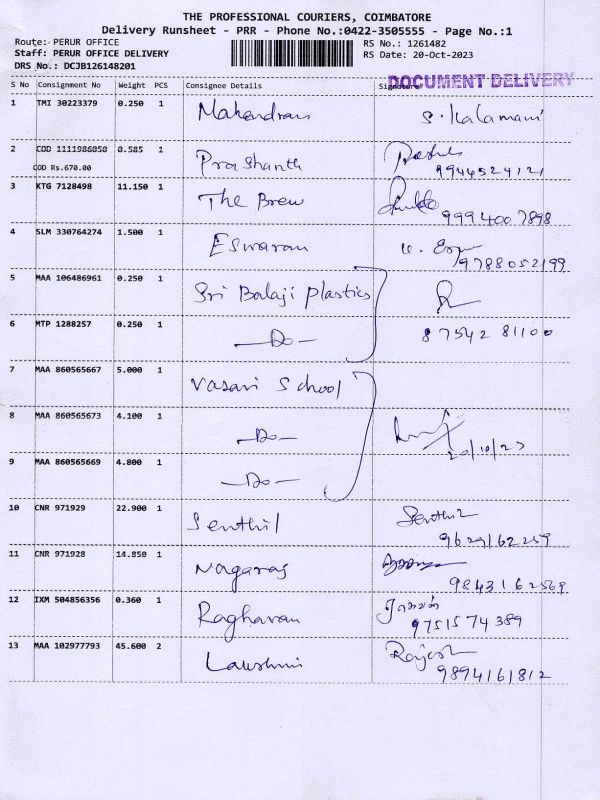 THE PROFESSIONAL COURIERS, COIMBATORE
Delivery Runsheet - PRR - Phone No.:0422-3505555 - Page No.:1
Route: PERUR OFFICE RS No.: 1261482
Staff: PERUR OFFICE DELIVERY RS Date: 20-Oct-2023
DRS No.: DCJB126148201 DOCUMENT DELIVERY
S No Consignment No Weight PCS Consignee Details Signature
1 TMI 30223379 0.250 1 Mahendran S. Kalamani
2 COD 1111986050 0.585 1 Prashanth
COD Rs.670.00 9944524121
3 KTG 7128498 11.150 1 The Brew
9994007898
4 SLM 330764274 1.500 1 Eswaran
9788052199
5 MAA 106486961 0.250 1 Sri Balaji Plastics
6 MTP 1288257 0.250 1 -Do- 87542 81100
7 MAA 860565667 5.000 1 Vasavi School
8 MAA 860565673 4.100 1 -Do-
20/10/23
9 MAA 860565669 4.800 1 -Do-
10 CNR 971929 22.900 1 Senthil Senthil
9629162259
11 CNR 971928 14.850 1 Nagaraj
9843162569
12 IXM 504856356 0.360 1 Raghavan
9751574389
13 MAA 102977793 45.600 2 Lakshmi Rajesh
9894161812